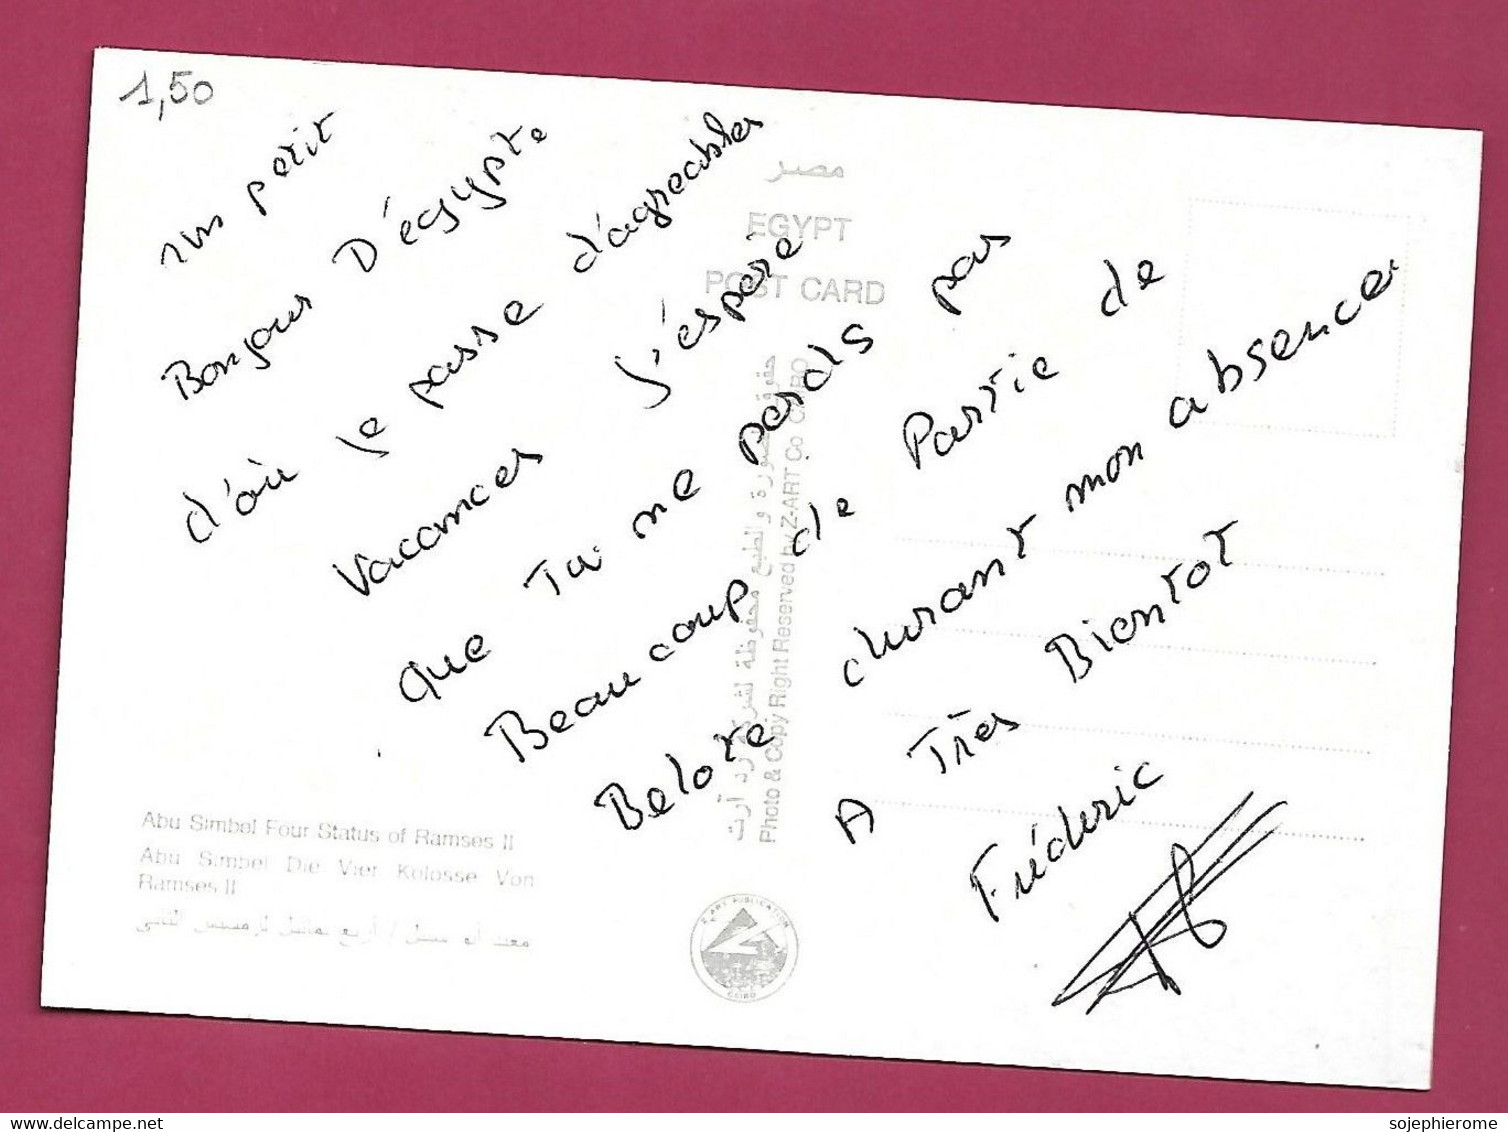 1,50
un petit
Bonjour D'égypte
d'où je passe d'agreables
Vacances J'éspère
que Tu ne perds pas
Beaucoup de Partie de
Belote durant mon absence.
A Très Bientot
Frédéric
مصر
EGYPT
POST CARD
حقوق الصورة والطبع محفوظة لشركة زد آرت
Photo & Copy Right Reserved by Z-ART Co CAIRO
Abu Simbel Four Status of Ramses II
Abu Simbel Die Vier Kolosse Von
Ramses II
Z ART PUBLICATION
CAIRO
www.delcampe.net
sojephierome